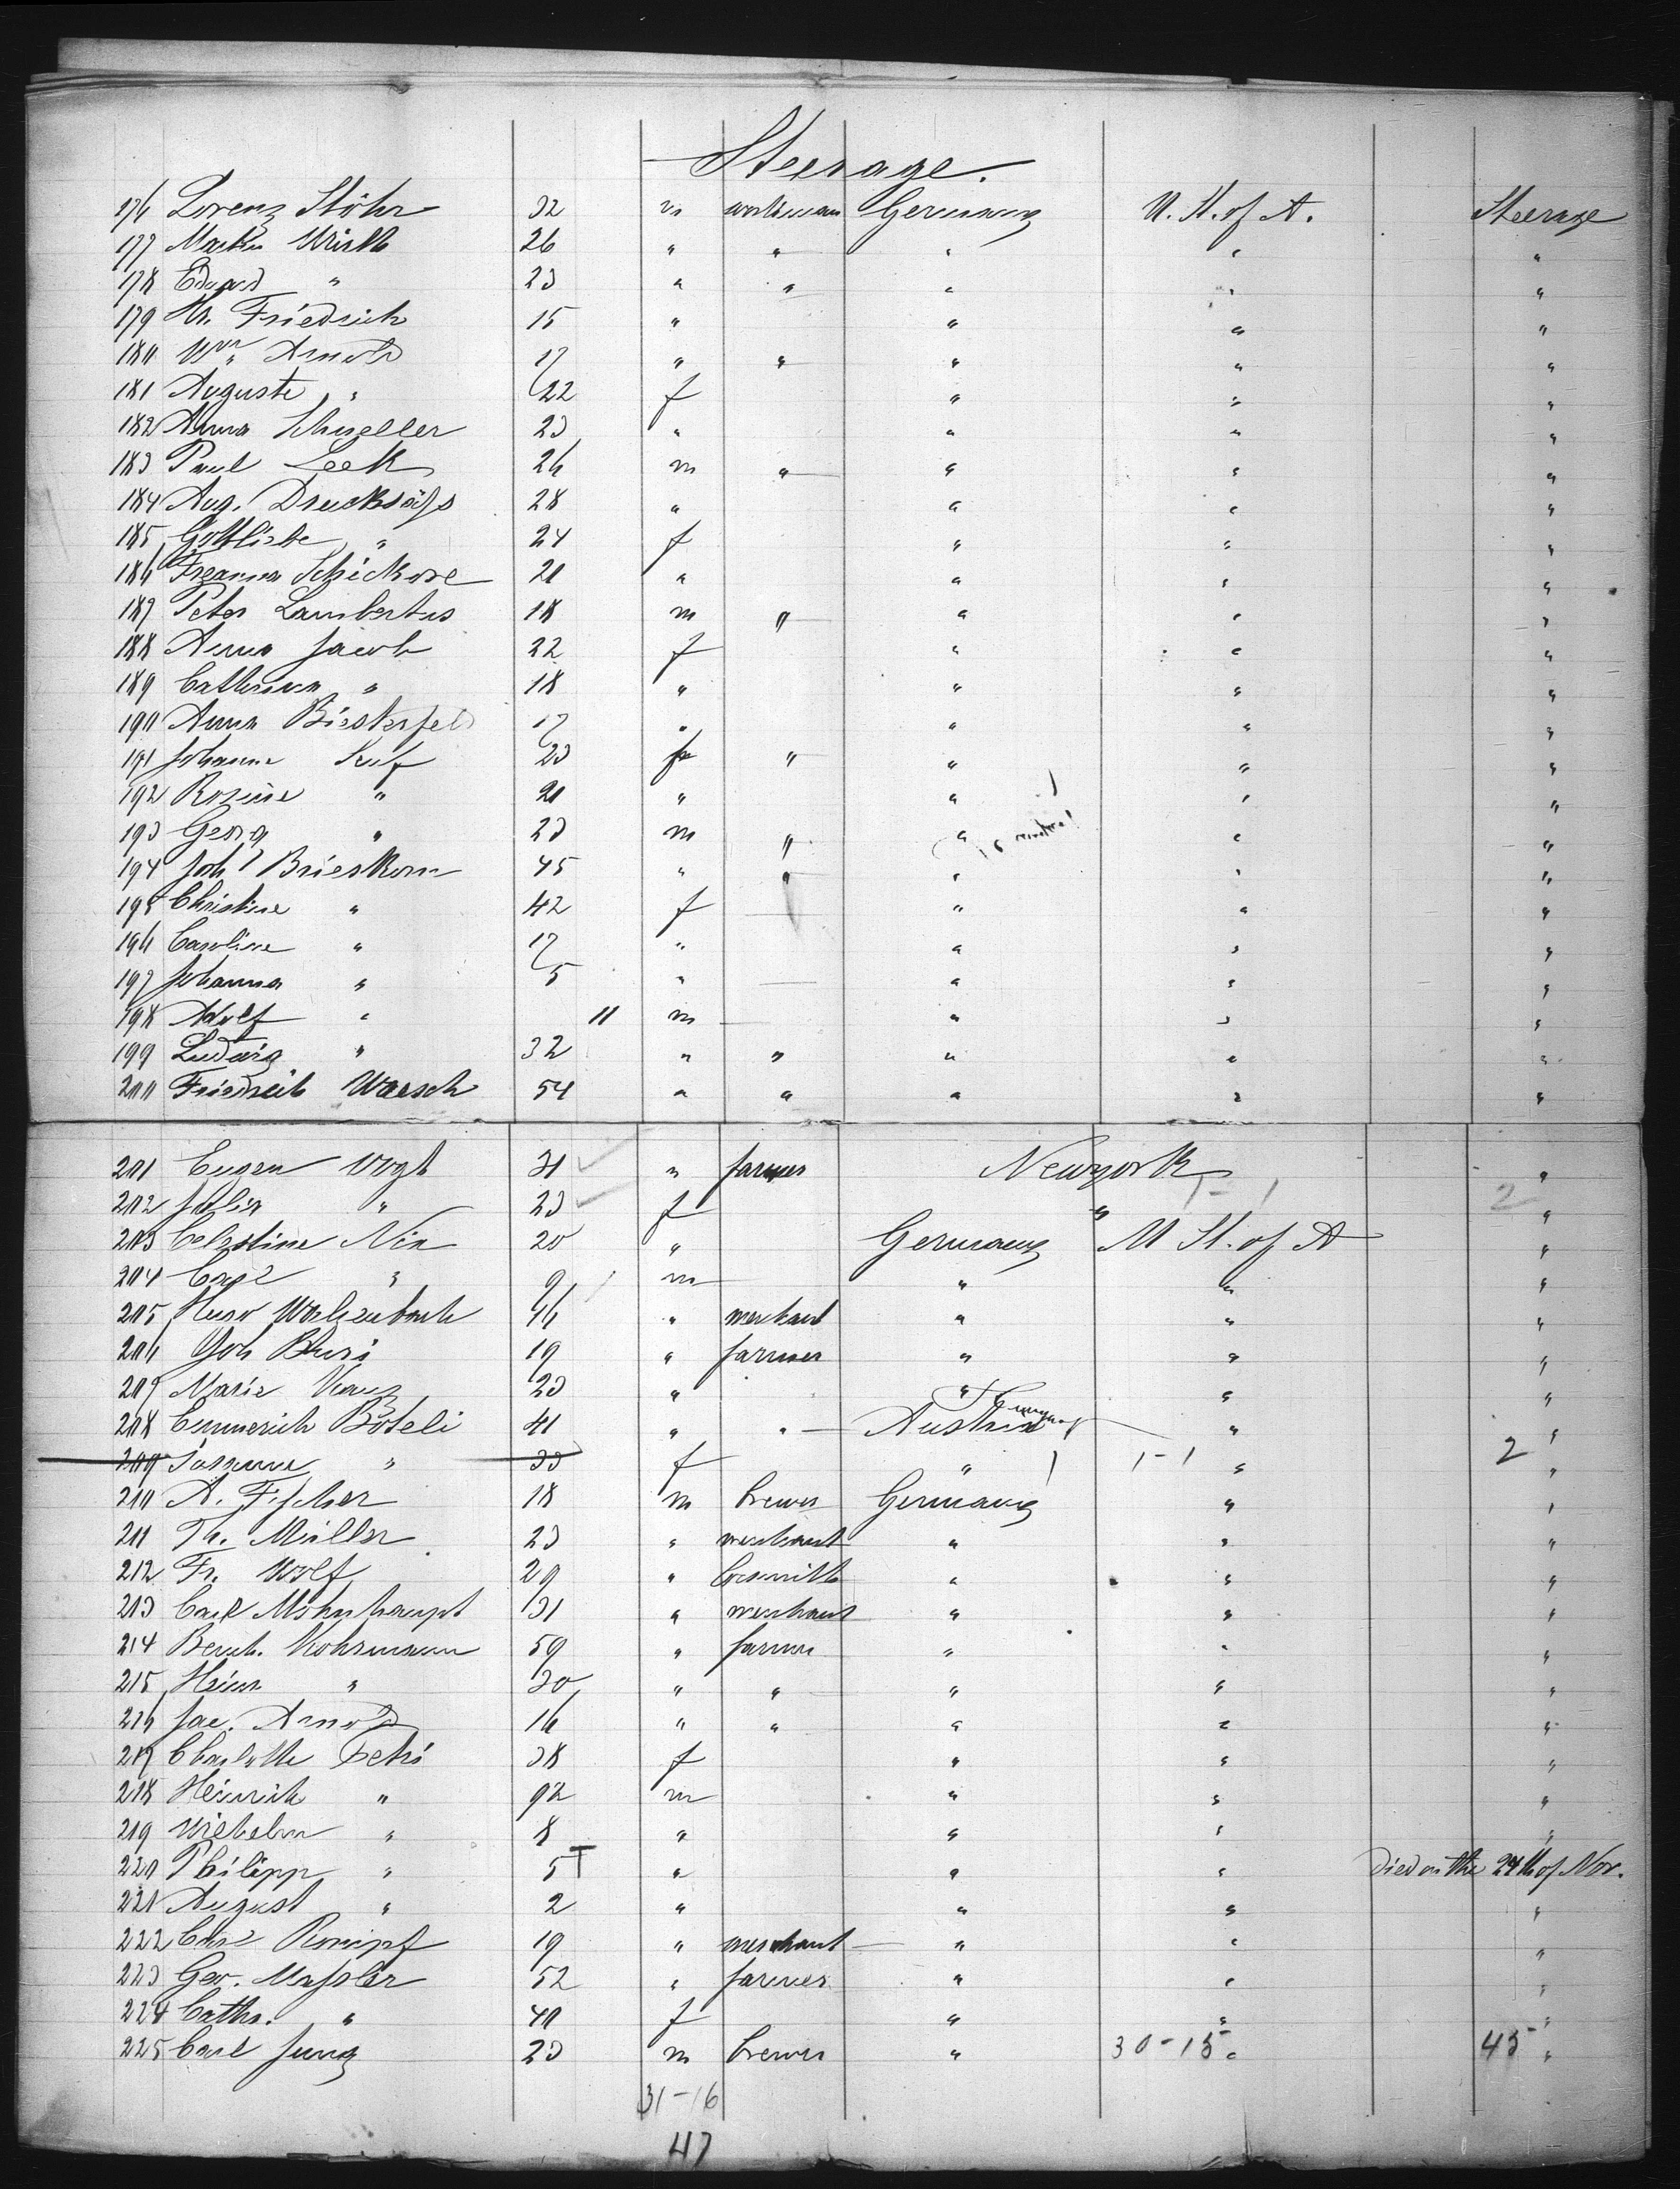 Steerage.
176 Lorenz Stöhr 32 m workman Germany U. St. of A. Steerage
177 Martin Wirth 26 " " " " "
178 Eduard " 23 " " " " "
179 Hr. Friedrich 15 " " " "
180 Wm Arnold 17 " " " " "
181 Auguste " 22 f " " "
182 Anna Schueller 23 " " " "
183 Paul Leek 26 m " " " "
184 Aug. Drucks 28 " " " "
185 Gottliebe " 24 f " " "
186 Schickore 20 " " " "
187 Peter Lambertus 18 m " " " "
188 Anna Jacob 22 f " " "
189 Catharina " 18 " " " "
190 Anna Biesterfeld 17 " " " "
191 Johann 23 " " " "
192 Rosine " 20 " " " "
193 Georg " 23 m " " " "
194 Joh Brieskorn 45 " " " " "
195 Christine " 42 f " " "
196 Caroline " 17 " " " "
197 Johanna " 5 " " " "
198 Adolf " 11 m " " "
199 Ludwig " 32 " " " " "
200 Friedrich Waesch 54 " " " " "
201 Eugen Vogt 31 " farmer Newyork "
202 Julia " 23 f " 1-1 2 "
203 Celestine Nix 20 " Germany U St. of A "
204 Carl " 9 m " " "
205 Hugo 46 " merchant " " "
206 Joh 19 " farmer " " "
207 Marie 23 " " " "
208 Emmerich Böteli 41 " " Austria " "
209 " 33 f " 1-1 " 2 "
210 A. Fischer 18 m brewer Germany " "
211 Th. Müller 23 " merchant " " "
212 Fr. Wolf 29 " " " "
213 Carl Mohnhaupt 31 " merchant " " "
214 Bernh. Kohrmann 59 " farmer " " "
215 Heinr " 30 " " " " "
216 Jac. Arnold 16 " " " " "
217 Charlotte Petri 38 f " " "
218 Heinrich " 9 m " " "
219 Wilhelm " 8 " " " "
220 Philipp " 5 T " " " Died on the 24th of Nov.
221 August " 2 " " " "
222 Carl 19 " merchant " " "
223 Geo. Massler 52 " farmer " " "
224 Cathr. " 40 f " " "
225 Carl Jung 23 m brewer " 30-15 " 45 "
31-16
47